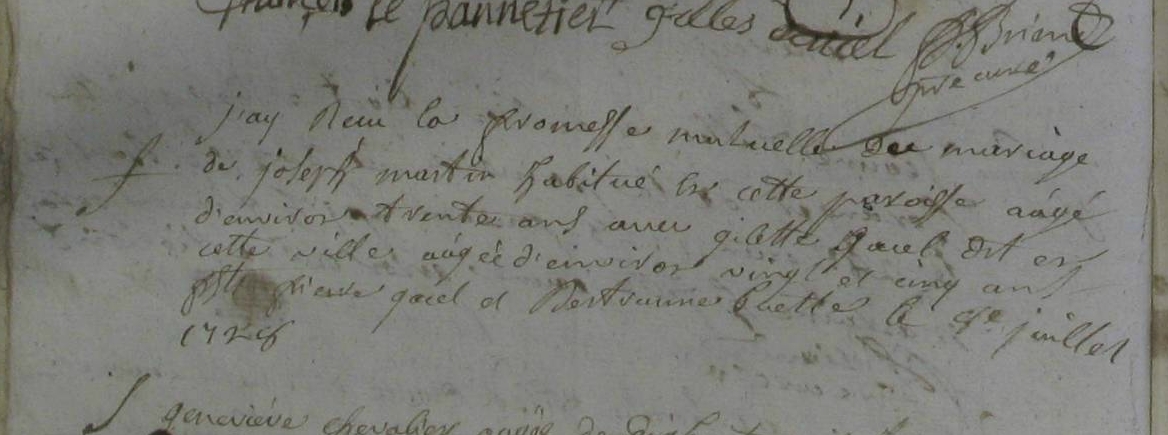 françois le pannetier Gilles Gaüel J. Briend
ptre curé
j'ay Receu la promesse mutuelle de mariage
de joseph martin habitué en cette paroisse aâgé
d'environ trente ans avec gilette gaüel de
cette ville aâgée d'environ vingt et cinq ans
pierre gaüel et Bertranne le juillet
172
geneviéve chevalier aâgée de